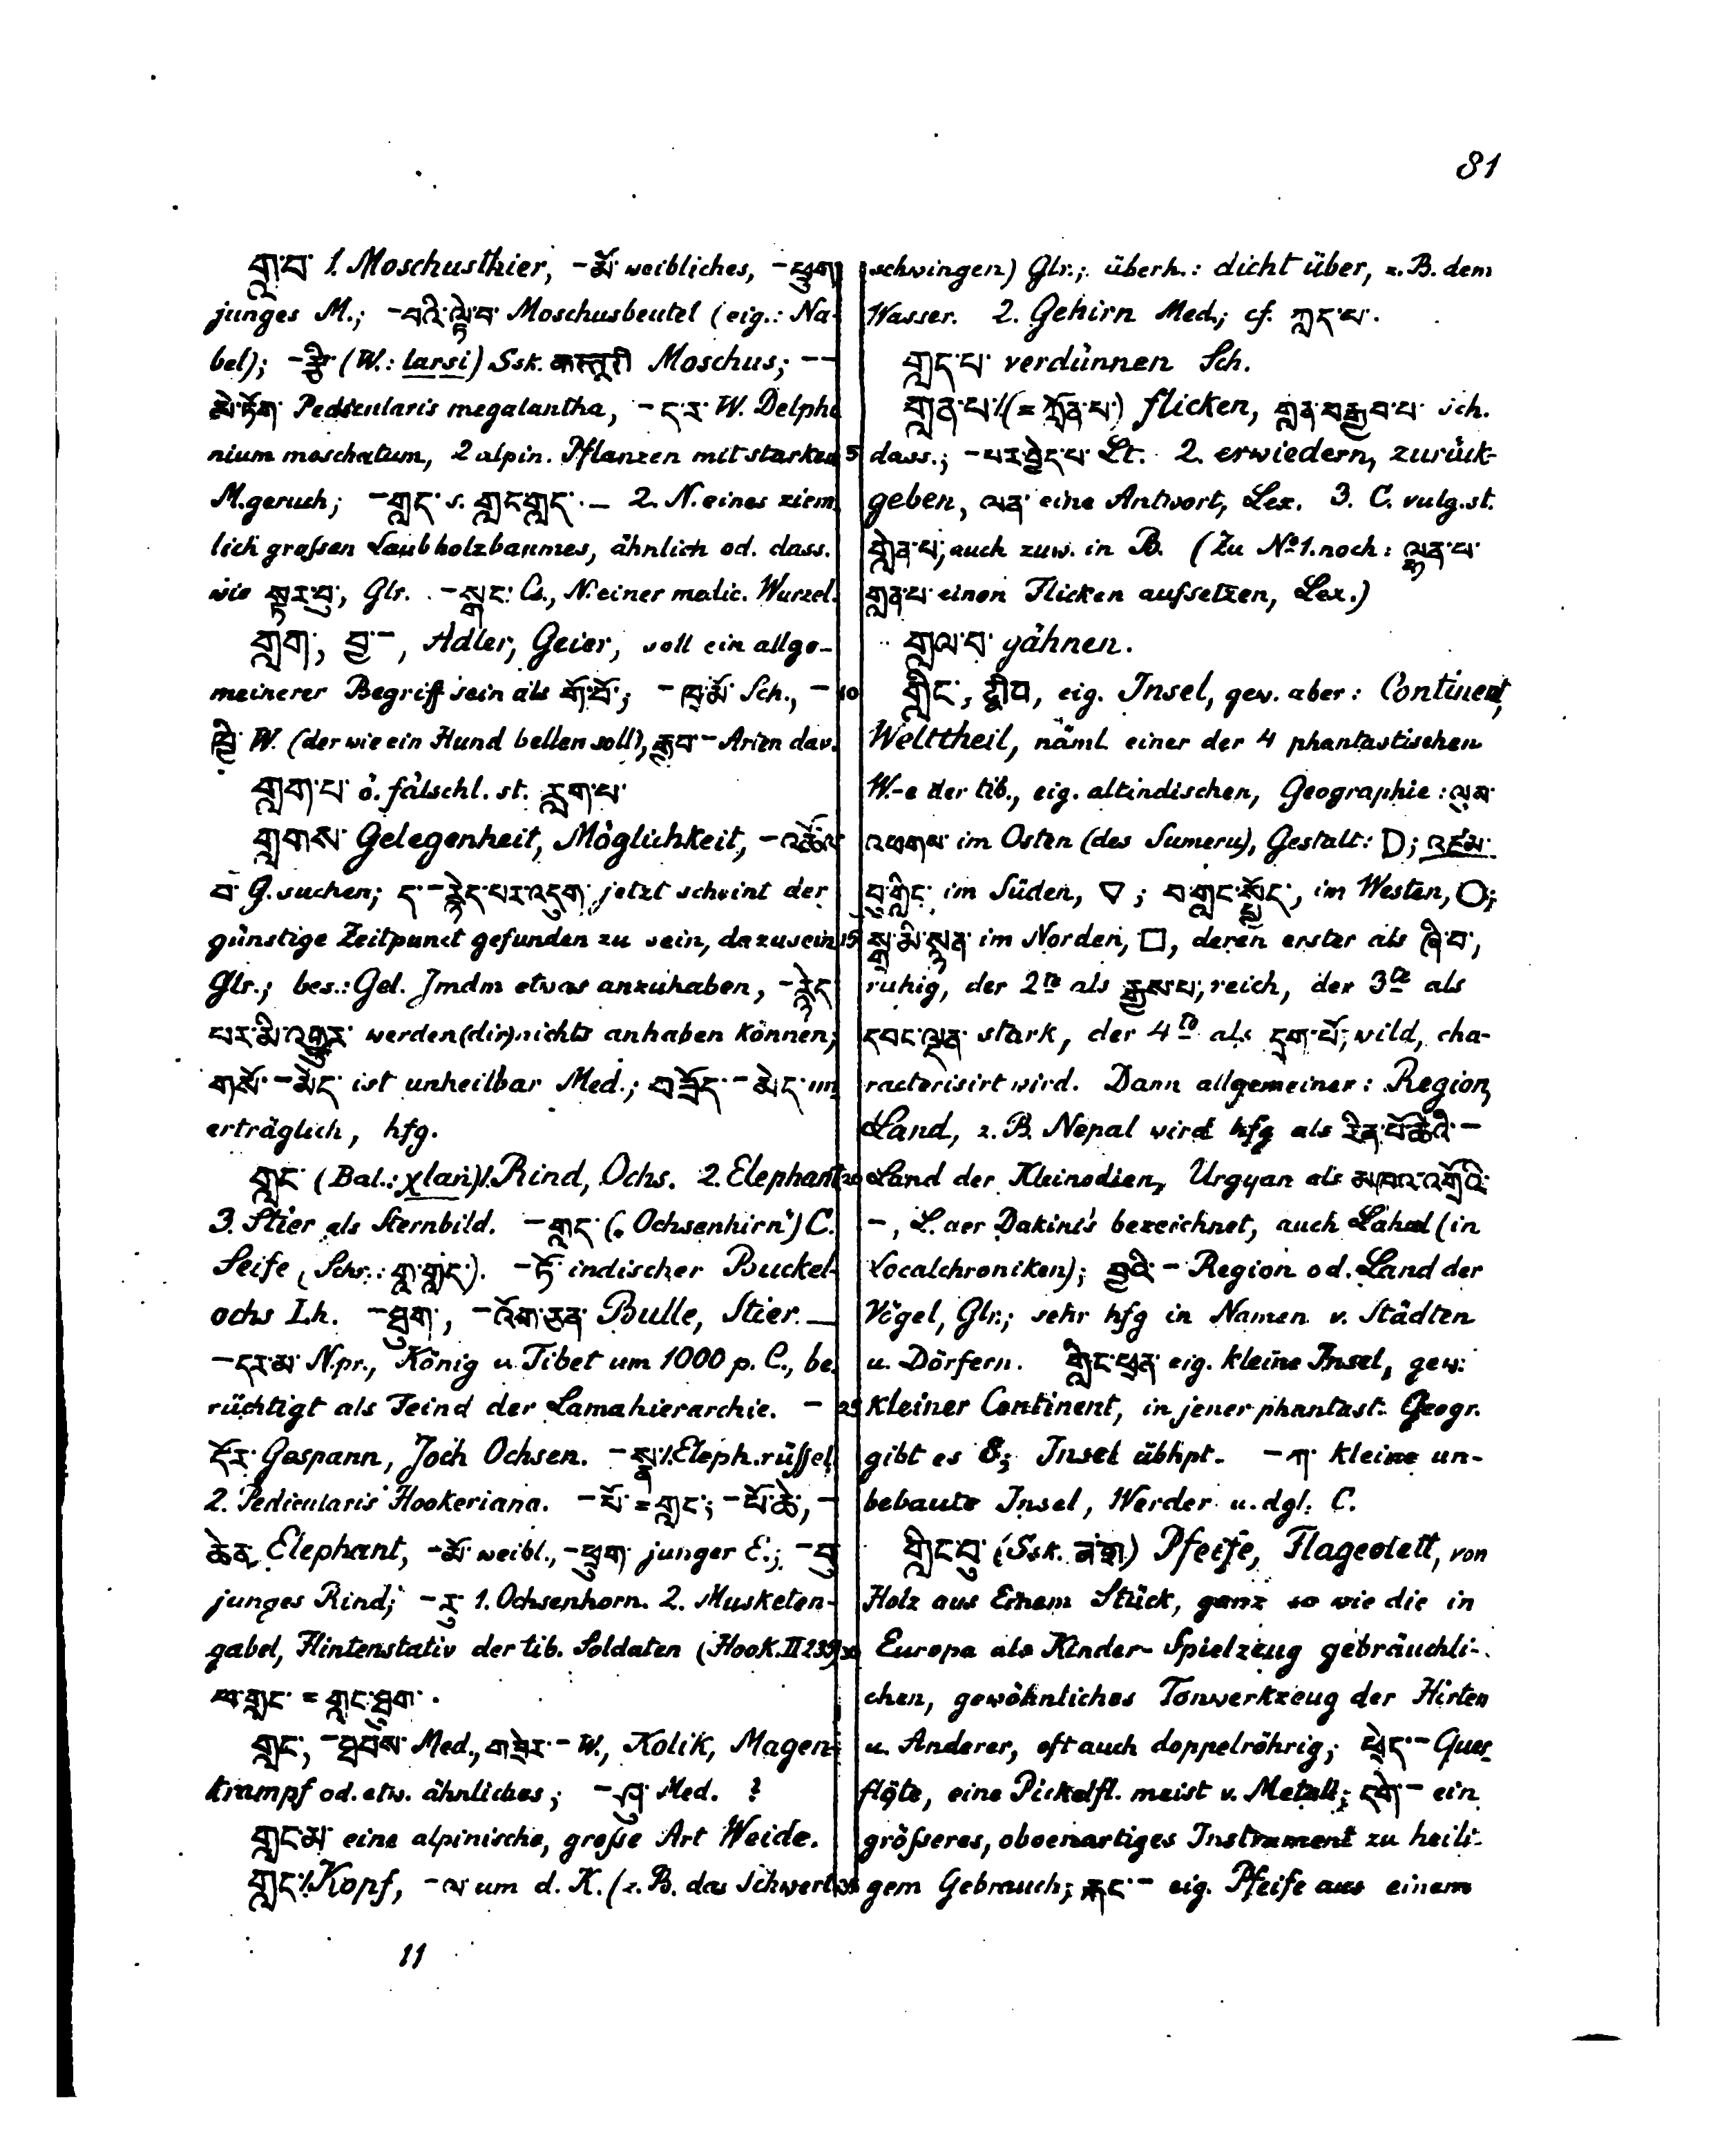 81
གླ་བ་ 1. Moschusthier, –མོ་ weibliches, –ཕྲུག
junges M.; –བའི་ལྟེ་བ་ Moschusbeutel (eig.: Na-
bel); –རྩི་ (W.: larsi) Ssk. कस्तूरी Moschus; ––
མེ་ཏོག་ Pedicularis megalantha, –ད་ར་ W. Delphi
nium moschatum, 2 alpin. Pflanzen mit starken
M.geruch; –གླང་ s. གླང་གླང་. — 2. N. eines ziem
lich großen Laubholzbaumes, ähnlich od. dass.
wie སྟར་བུ་, Glr. –སྒང་ Cs., N. einer medic. Wurzel.
གླག་, བྱ་–, Adler, Geier, soll ein allge-
meinerer Begriff sein als གོ་བོ་; –ཁྲ་མོ་ Sch., –
ཁྱི་ W. (der wie ein Hund bellen soll), རྒྱབ་– Arten dav.
གླག་པ་ ö. fälschl. st. རླག་པ་
གླགས་ Gelegenheit, Möglichkeit, –འཚོལ
བ་ G. suchen; ད་–རྙེད་པར་འདུག་ jetzt scheint der
günstige Zeitpunct gefunden zu sein, dazu sein
Glr.; bes.: Gel. Jmdm etwas anzuhaben, –རྙེད
པར་མི་འགྱུར་ werden (dir) nichts anhaben können;
གསོ་–མེད་ ist unheilbar Med.; བཟོད་–མེད་ un
erträglich, hfg.
གླང་ (Bal.: χlaṅ) 1. Rind, Ochs. 2. Elephant
3. Stier als Sternbild. –གླད་ („Ochsenhirn") C.
Seife (Schr.: གླ་གླང་). –ཏོ་ indischer Buckel-
ochs Lh. –ཐུག་, –འོག་ཅན་ Bulle, Stier. —
–དར་མ་ N.pr., König v. Tibet um 1000 p. C., be-
rüchtigt als Feind der Lamahierarchie. –
དོར་ Gespann, Joch Ochsen. –སྣ་ 1. Eleph.rüssel
2. Pedicularis Hookeriana. –པོ་ = གླང་; –པོ་ཆེ་, –
ཆེན་ Elephant, –མོ་ weibl., –ཕྲུག་ junger E.; –བུ
junges Rind; –རུ་ 1. Ochsenhorn. 2. Musketen-
gabel, Flintenstativ der tib. Soldaten (Hook. II 235)
བ་གླང་ = གླང་ཐུག་.
གླང་, –ཐབས་ Med., གཟེར་– W., Kolik, Magen-
krampf od. etw. ähnliches; –ཤུ་ Med. ?
གླང་མ་ eine alpinische, große Art Weide.
གླད་ 1. Kopf, –ལ་ um d. K. (z. B. das Schwert
schwingen) Glr.; überh.: dicht über, z. B. dem
Wasser. 2. Gehirn Med.; cf. ཀླད་པ་.
གླད་པ་ verdünnen Sch.
གླན་པ་ 1. (= ཀློན་པ་) flicken, གླན་བརྒྱབ་པ་ Sch.
dass.; –པར་བྱེད་པ་ Lt. 2. erwiedern, zurück-
geben, ལན་ eine Antwort, Lex. 3. C. vulg. st.
གླེན་པ་; auch zuw. in B. (Zu No 1. noch: ལྷན་པ་
གླན་པ་ einen Flicken aufsetzen, Lex.)
གླལ་བ་ gähnen.
གླིང་, द्वीप, eig. Insel, gew. aber: Continent,
Welttheil, näml. einer der 4 phantastischen
W.-e der tib., eig. altindischen, Geographie: ལུས་
འཕགས་ im Osten (des Sumeru), Gestalt: D; འཛམ་
བུ་གླིང་ im Süden, ▽; བ་གླང་སྤྱོད་, im Westen, ○;
སྒྲ་མི་སྙན་ im Norden, □, deren erster als ཞི་བ་,
ruhig, der 2te als རྒྱས་པ་, reich, der 3te als
དབང་ལྡན་ stark, der 4te als དྲག་པོ་, wild, cha-
racterisirt wird. Dann allgemeiner: Region,
Land, z. B. Nepal wird hfg als རིན་པོ་ཆེའི་–
Land der Kleinodien, Urgyan als མཁའ་འགྲོའི་
–, L. der Dakini's bezeichnet, auch Lahul (in
Localchroniken); བྱའི་– Region od. Land der
Vögel, Glr.; sehr hfg in Namen v. Städten
u. Dörfern. གླིང་ཕྲན་ eig. kleine Insel, gew.:
kleiner Continent, in jener phantast. Geogr.
gibt es 8; Insel übhpt. –ཀ་ kleine un-
bebaute Insel, Werder u. dgl. C.
གླིང་བུ་ (Ssk. वंश) Pfeife, Flageolett, von
Holz aus Einem Stück, ganz so wie die in
Europa als Kinder-Spielzeug gebräuchli-
chen, gewöhnliches Tonwerkzeug der Hirten
u. Anderer, oft auch doppelröhrig; ཕྲེད་– Quer-
flöte, eine Pickelfl. meist v. Metall; དགེ་– ein
größeres, oboenartiges Instrument zu heili-
gem Gebrauch; རྐང་– eig. Pfeife aus einem
11